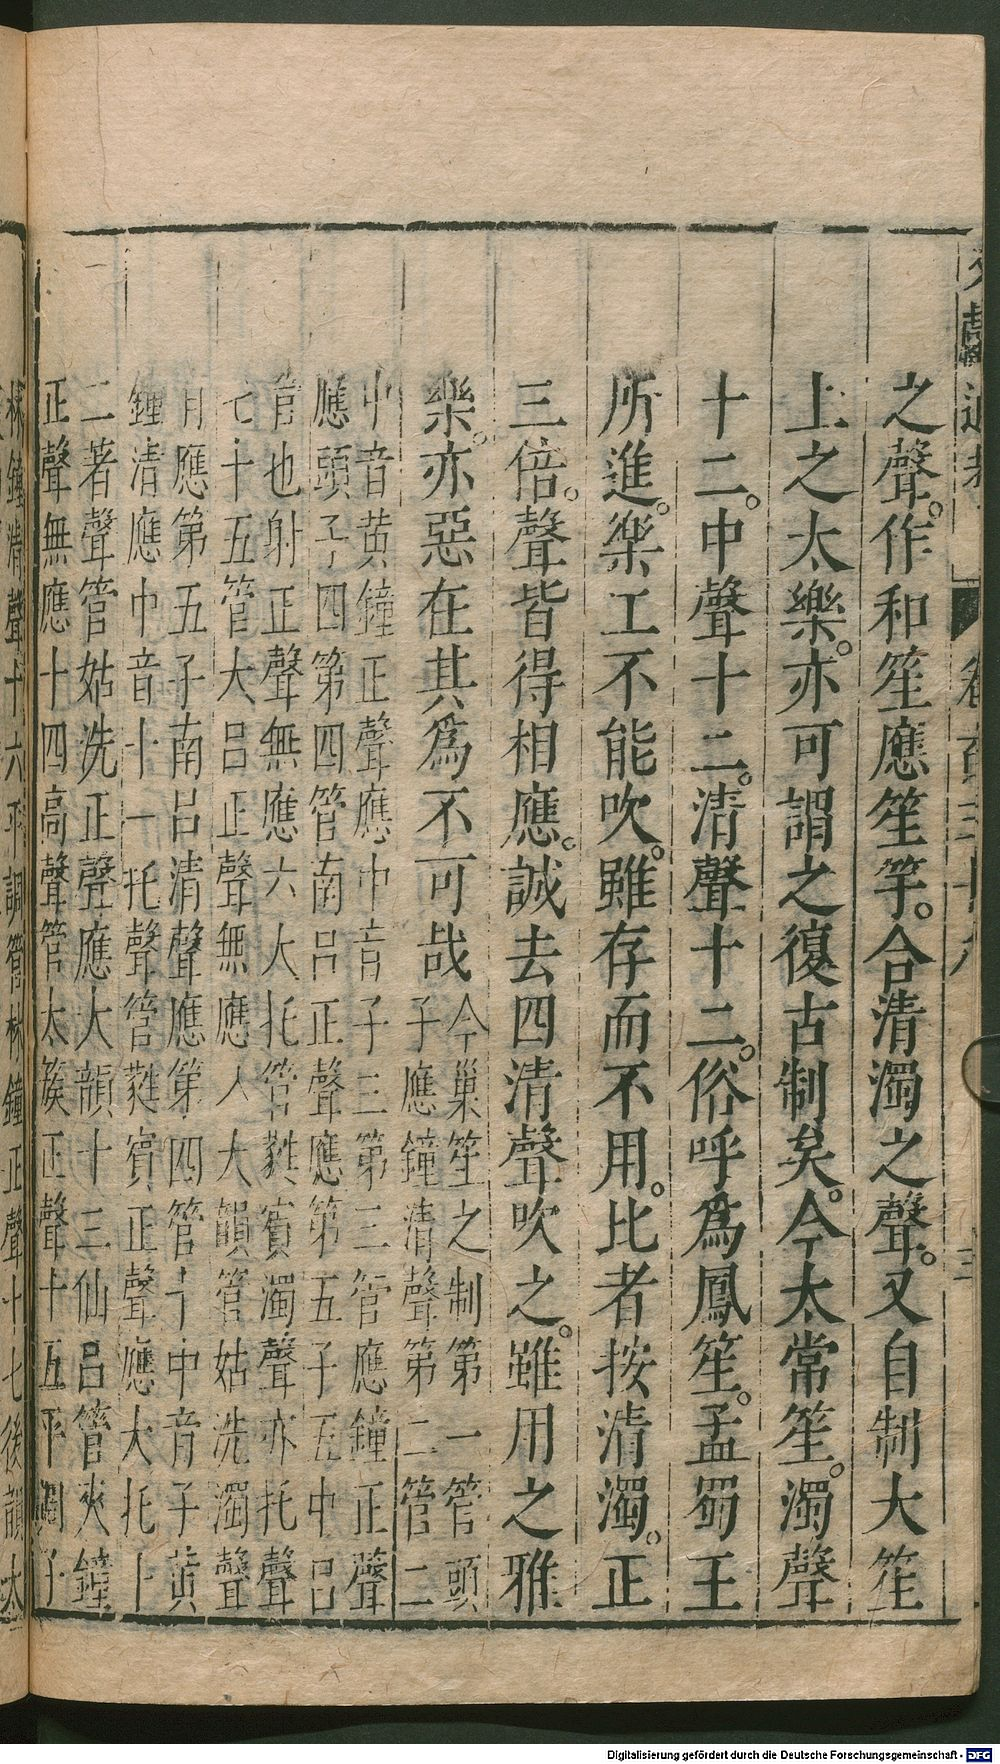 之聲。作和笙應笙竽。合清濁之聲。又自制大笙
上之太樂。亦可謂之復古制矣。今太常笙。濁聲
十二。中聲十二。清聲十二。俗呼爲鳳笙。孟蜀王
所進。樂工不能吹。雖存而不用。比者按清濁。正
三倍。聲皆得相應。誠去四清聲吹之。雖用之雅
樂。亦惡在其爲不可哉
今巢笙之制第一管頭
子應鐘清聲第二管二
中音黄鐘正聲應中音子三第三管應鐘正聲
應頭子四第四管南呂正聲應第五子五中呂
管也射正聲無應六大托管蕤賓濁聲亦托聲
七十五管大呂正聲無應八大韻管姑洗濁聲
有應第五子南呂清聲應第四管十中音子黄
鐘清應中音十一托聲管蕤賓正聲應大托十
二著聲管姑洗正聲應大韻十三仙呂管夾鐘
正聲無應十四高聲管太簇正聲十五平調子
林鐘清聲十六平調管林鐘正聲十七後韻太
Digitalisierung gefördert durch die Deutsche Forschungsgemeinschaft - DFG